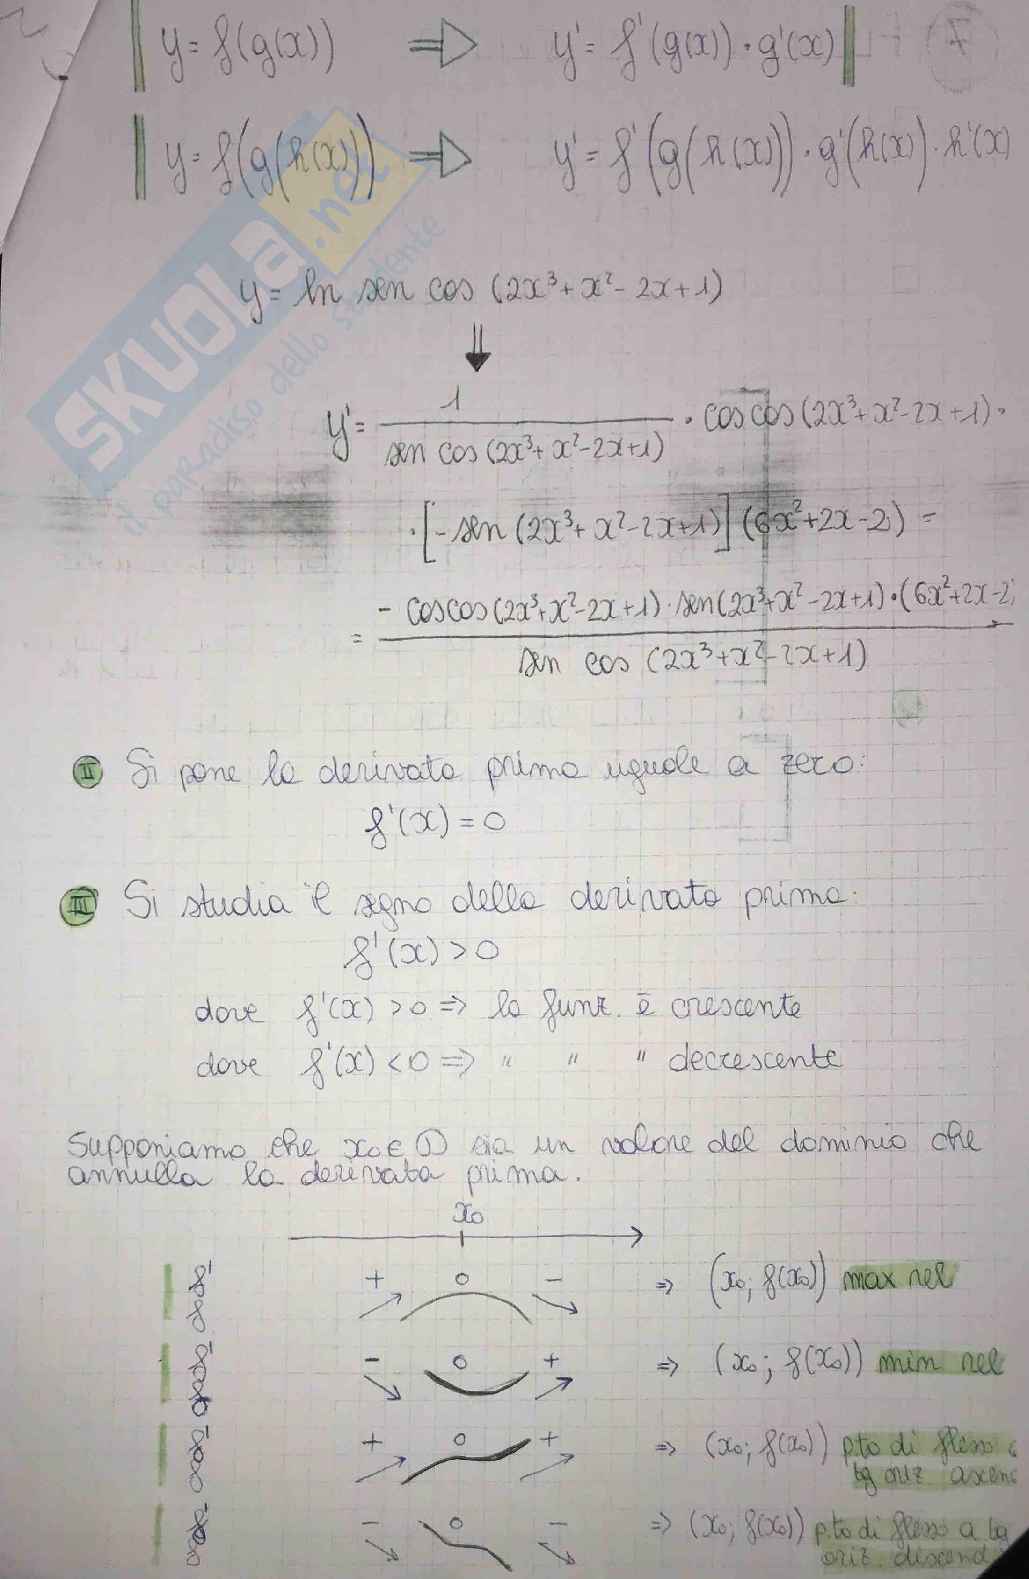 y = f(g(x)) ⇒ y' = f'(g(x)) · g'(x)
y = f(g(h(x))) ⇒ y' = f'(g(h(x))) · g'(h(x)) · h'(x)
SKUOLA.net
il paradiso dello studente
y = ln sen cos (2x³ + x² - 2x + 1)
⇓
y' = 1 / sen cos (2x³ + x² - 2x + 1) · cos cos (2x³ + x² - 2x + 1) ·
· [- sen (2x³ + x² - 2x + 1)] (6x² + 2x - 2) =
= - cos cos (2x³ + x² - 2x + 1) · sen (2x³ + x² - 2x + 1) · (6x² + 2x - 2) / sen cos (2x³ + x² - 2x + 1)
II Si pone la derivata prima uguale a zero:
f'(x) = 0
III Si studia il segno della derivata prima:
f'(x) > 0
dove f'(x) > 0 ⇒ la funz. è crescente
dove f'(x) < 0 ⇒ " " " decrescente
Supponiamo che x₀ ∈ D sia un valore del dominio che
annulla la derivata prima.
x₀
+ 0 - ⇒ (x₀; f(x₀)) max rel
- 0 + ⇒ (x₀; f(x₀)) min rel
+ 0 + ⇒ (x₀; f(x₀)) p.to di flesso a
tg oriz ascen
- 0 - ⇒ (x₀; f(x₀)) p.to di flesso a tg
oriz. discend